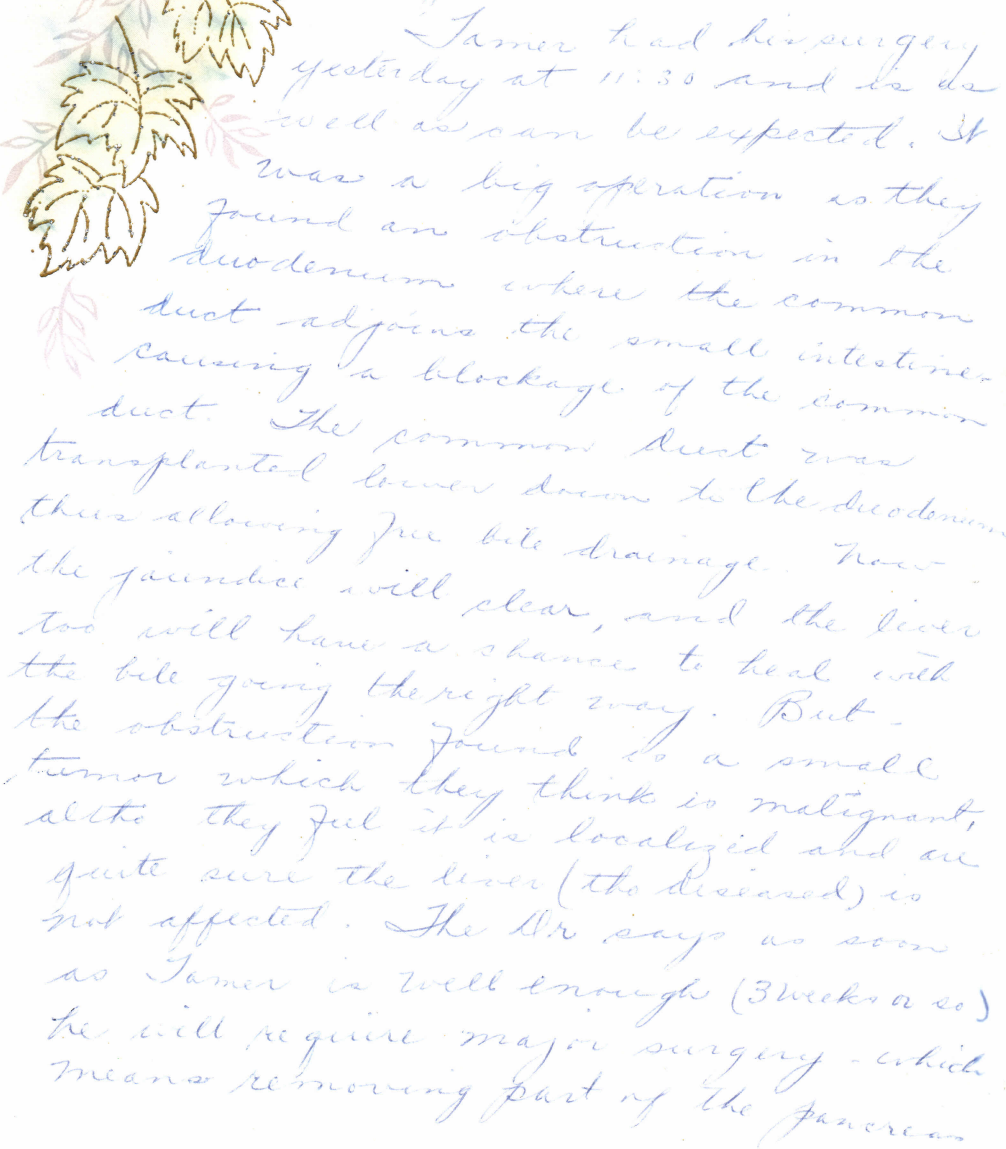 Tamer had his surgery
yesterday at 11:30 and is as
well as can be expected. It
was a big operation as they
found an obstruction in the
duodenum where the common
duct adjoins the small intestine -
causing a blockage of the common
duct. The common duct was
transplanted lower down to the duodenum
thus allowing free bile drainage. Now -
the jaundice will clear, and the liver
too will have a chance to heal with
the bile going the right way. But -
the obstruction found is a small
tumor which they think is malignant,
altho they feel it is localized and are
quite sure the liver (tho diseased) is
not affected. The Dr says as soon
as Tamer is well enough (3 weeks or so)
he will require major surgery - which
means removing part of the pancreas